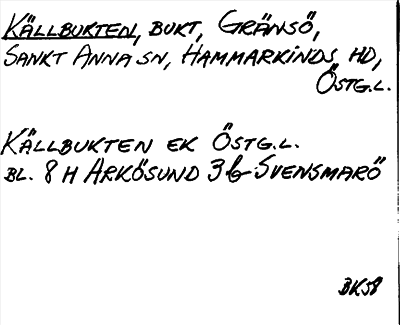 KÄLLBUKTEN, BUKT, GRÄNSÖ,
SANKT ANNA SN, HAMMARKINDS HD,
ÖSTG.L.
KÄLLBUKTEN EK ÖSTG.L.
BL. 8 H ARKÖSUND 3 b SVENSMARÖ
BK58